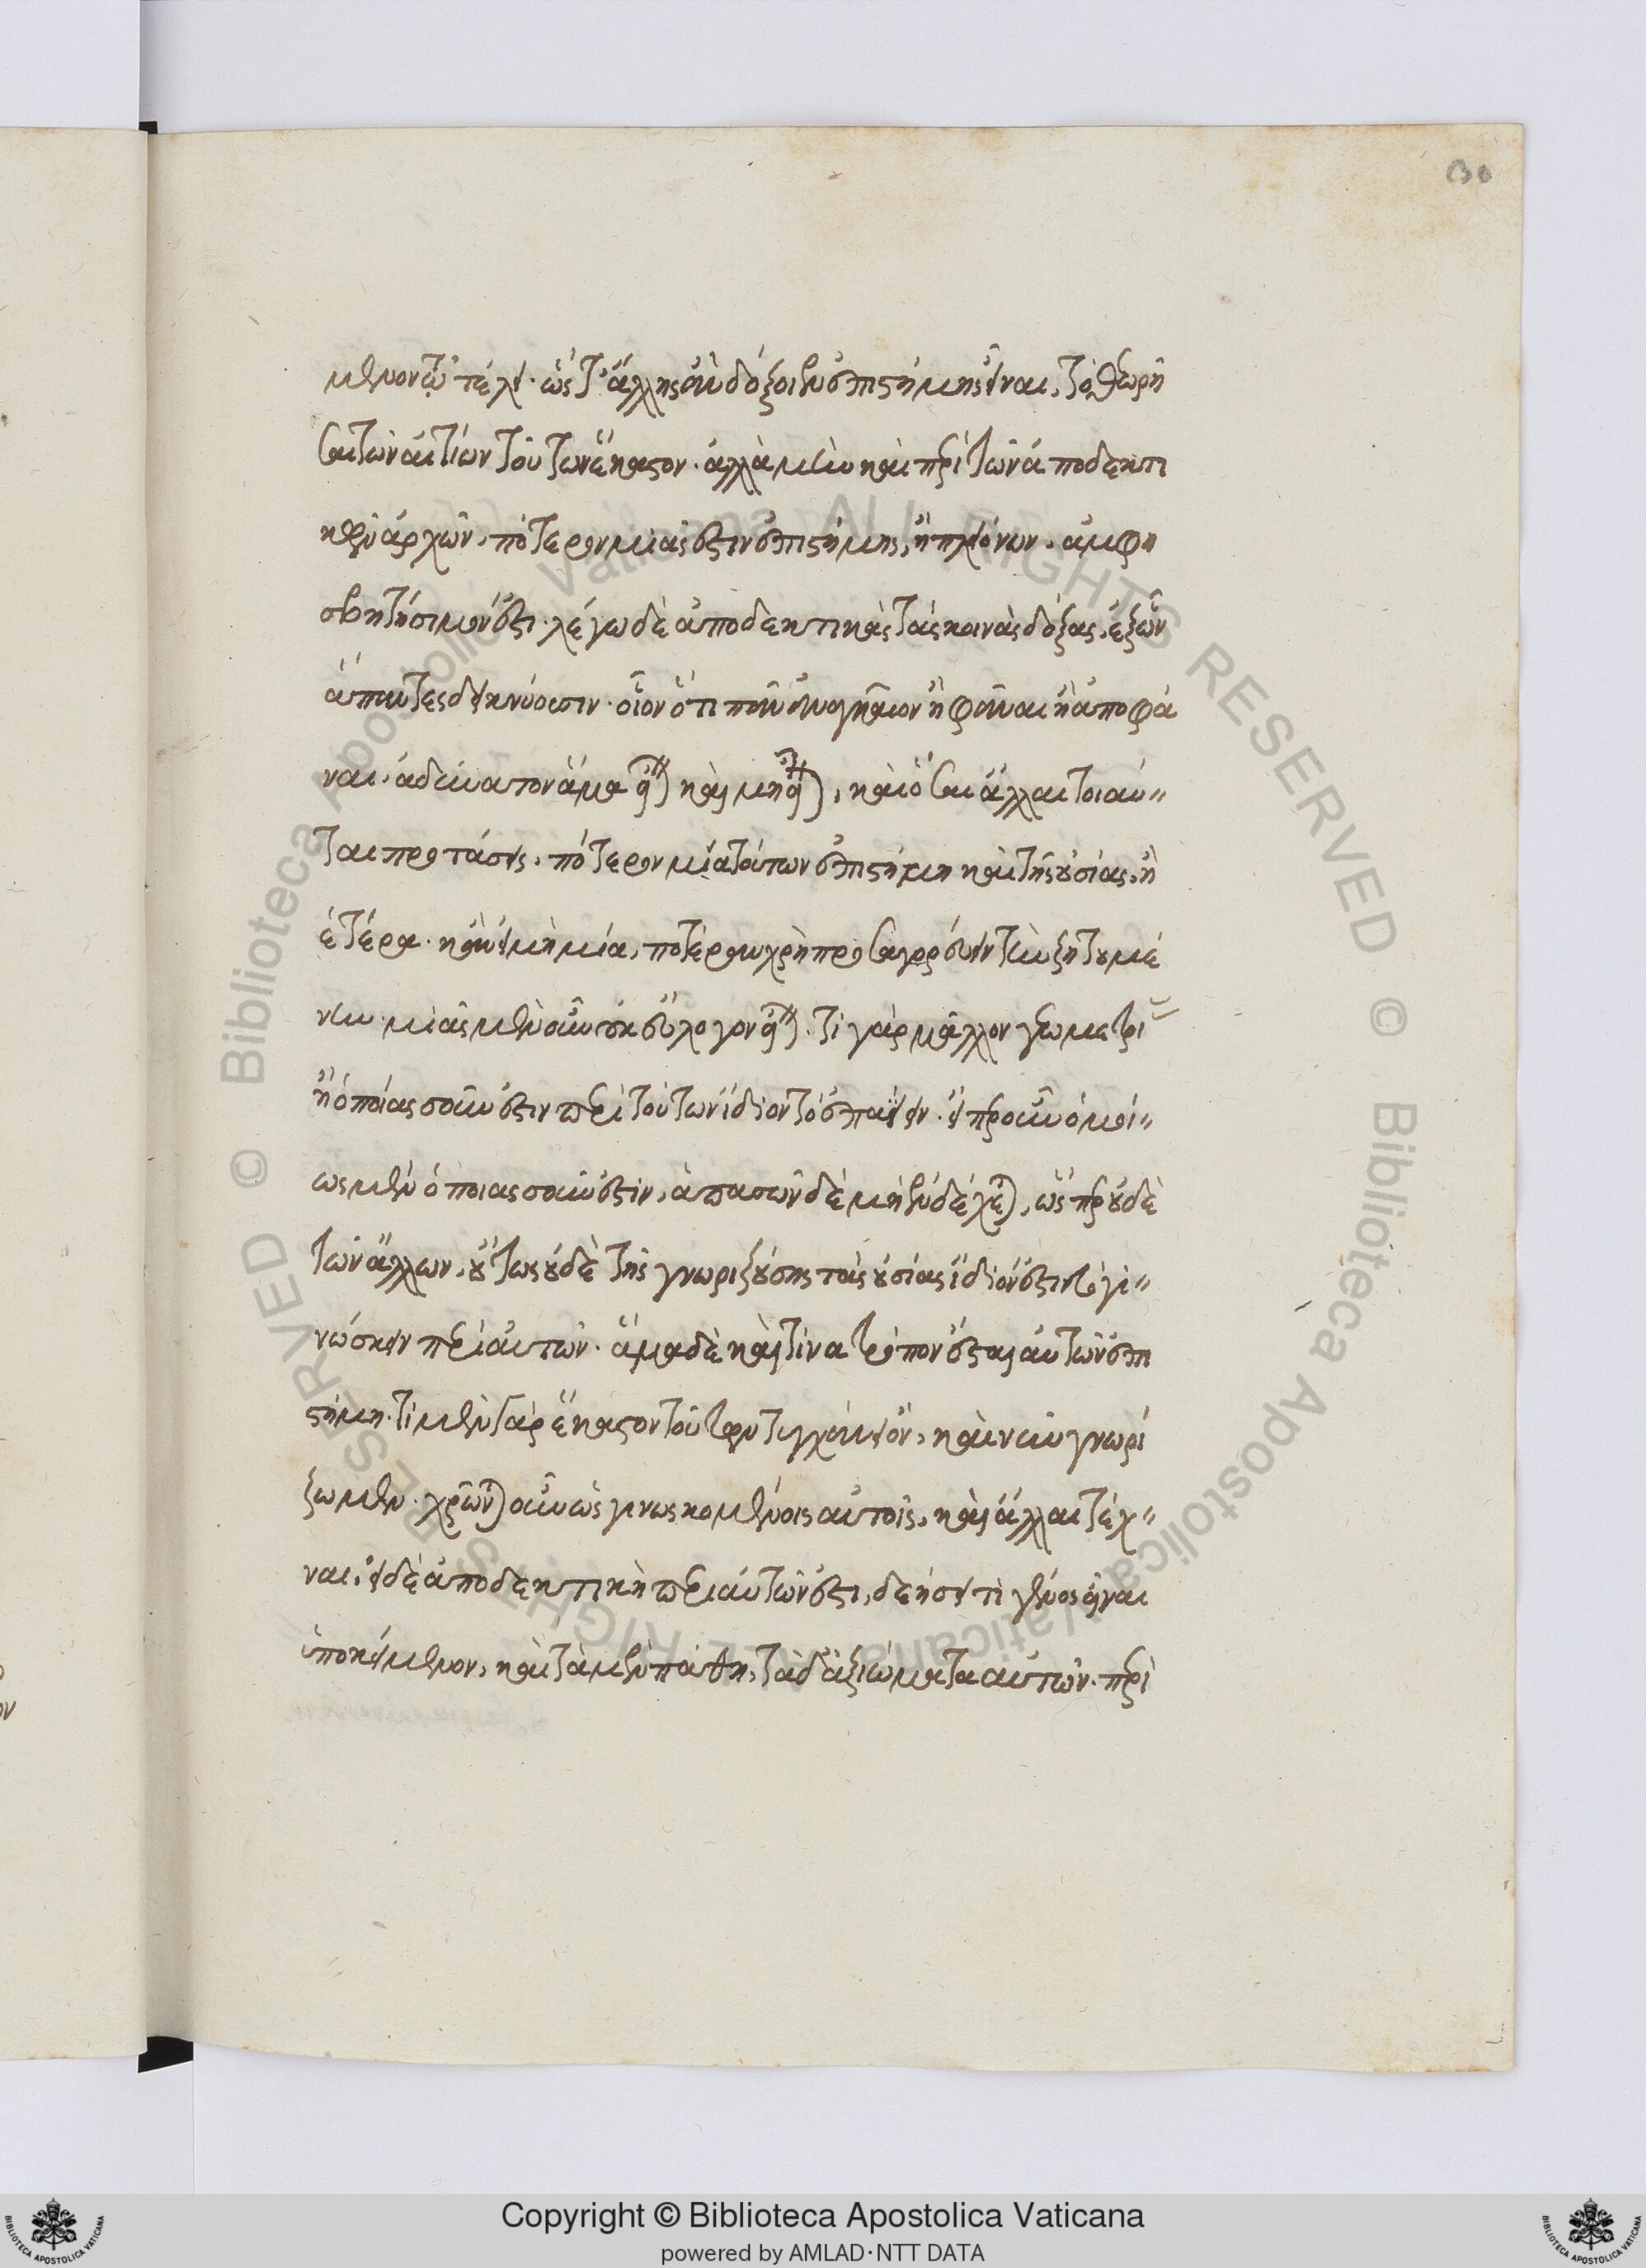 μενον τῷ τέλει· ὥστ' ἄλλης ἂν δόξοι ἐπιστήμης εἶναι, τὸ θεωρῆ
σαι τῶν αἰτίων τούτων ἕκαστον· ἀλλὰ μὴν καὶ περὶ τῶν ἀποδεικτι
κῶν ἀρχῶν, πότερον μιᾶς ἐστὶν ἐπιστήμης, ἢ πλειόνων, ἀμφι
σβητήσιμόν ἐστι· λέγω δὲ ἀποδεικτικὰς τὰς κοινὰς δόξας, ἐξ ὧν
ἅπαντες δεικνύουσιν· οἷον ὅτι πᾶν ἀναγκαῖον ἢ φάναι ἢ ἀποφά
ναι· ἀδύνατον ἅμα εἶναι καὶ μὴ εἶναι, καὶ ὅσαι ἄλλαι τοιαῦ
ται προτάσεις, πότερον μία τούτων ἐπιστήμη καὶ τῆς οὐσίας, ἢ
ἑτέρα· κἂν εἰ μὴ μία, ποτέραν χρὴ προσαγορεύειν τὴν ζητουμέ
νην· μιᾶς μὲν οὖν οὐκ εὔλογον εἶναι· τί γὰρ μᾶλλον γεωμετρί
ἢ ὁποιασοῦν ἐστὶν περὶ τούτων ἴδιον τὸ ἐπαΐειν· εἴπερ οὖν ὁμοί
ως μὲν ὁποιασοῦν ἐστίν, ἁπασῶν δὲ μὴ ἐνδέχεται, ὥσπερ οὐδὲ
τῶν ἄλλων, οὕτως οὐδὲ τῆς γνωριζούσης τὰς οὐσίας ἴδιόν ἐστιν τὸ γι
νώσκειν περὶ αὐτῶν· ἅμα δὲ καὶ τίνα τρόπον ἔσται αὐτῶν ἐπι
στήμη· τί μὲν γὰρ ἕκαστον τούτων τυγχάνει ὄν, καὶ νῦν γνωρί
ζομεν· χρῶνται οὖν ὡς γινωσκομένοις αὐτοῖς, καὶ ἄλλαι τέχ
ναι· εἰ δὲ ἀποδεικτικὴ περὶ αὐτῶν ἐστι, δεήσει τὶ γένος εἶναι
ὑποκείμενον, καὶ τὰ μὲν πάθη, τὰ δ' ἀξιώματα αὐτῶν· περὶ
Copyright © Biblioteca Apostolica Vaticana
powered by AMLAD·NTT DATA